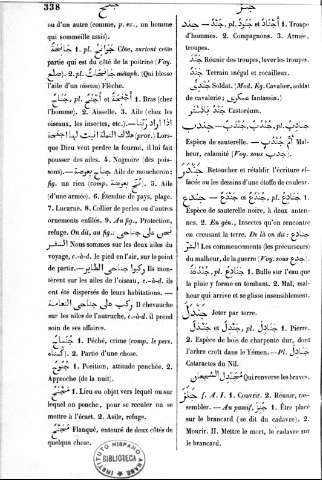 338
جنح
جنز
ou d'un autre (comme, p. ex., un homme
qui sommeille assis).
جَانِحَةٌ 1. pl. جَوَانِحُ Côte, surtout cette
partie qui est du côté de la poitrine (Voy.
ضلع). 2. pl. جَانِحَاتٌ métaph. (Qui blesse
l'aile d'un oiseau) Flèche.
جَنَاحٌ, pl. أَجْنُحٌ et أَجْنِحَةٌ 1. Bras (chez
l'homme). 2. Aisselle. 3. Aile (chez les
oiseaux, les insectes, etc.).
(prov.) Lors-
que Dieu veut perdre la fourmi, il lui fait
pousser des ailes. 4. Nageoire (des pois-
sons). — جناح بعوضة Aile de moucheron;
fig. un rien (comp. بعوضة). 5. Aile
(d'une armée). 6. Étendue de pays, plage.
7. Lucarne. 8. Collier de perles ou d'autres
ornements enfilés. 9. Au fig., Protection,
refuge. On dit, au fig.: نحن على جناح
السفر Nous sommes sur les deux ailes du
voyage, c.-à-d. le pied en l'air, sur le point
de partir. — ركبوا جناحي الطائر Ils mon-
tèrent sur les ailes de l'oiseau, c.-à-d. ils
ont été dispersés de leurs habitations. —
ركب على جناحي النعامة Il chevauche
sur les ailes de l'autruche, c.-à-d. il prend
soin de ses affaires.
جُنَاحٌ 1. Péché, crime (comp. le pers.
گناه). 2. Partie d'une chose.
جُنُوحٌ 1. Position, attitude penchée. 2.
Approche (de la nuit).
1. Lieu ou objet vers lequel ou sur
lequel on penche, pour se reculer ou se
mettre à l'écart. 2. Asile, refuge.
مُجَنَّحٌ Flanqué, entouré de deux côtés de
quelque chose.
جُنْدٌ, pl. أَجْنَادٌ et جُنُودٌ 1. Troupe
d'hommes. 2. Compagnons. 3. Armée,
troupes.
Réunir des troupes, lever des troupes.
جَنَدٌ Terrain inégal et rocailleux.
جُنْدِيٌّ Soldat. (Med. Eg. Cavalier, soldat
de cavalerie; عسكري fantassin.)
جند بادستر Castoreum.
جُنْدَبٌ, pl. جَنَادِبُ
Espèce de sauterelle. — أُمُّ جُنْدَبٍ Mal-
heur, calamité (Voy. sous جدب).
جَنْدَرَ Retoucher et rétablir l'écriture ef-
facée ou les dessins d'une étoffe de couleur.
جُنْدُعٌ, pl. جَنَادِعُ 1.
Espèce de sauterelle noire, à deux anten-
nes. 2. En gén., Insectes qu'on rencontre
en creusant la terre. De là on dit: جنادع
الشر Les commencements (les précurseurs)
du malheur, de la guerre (Voy. sous جدع).
جُنْدُعَةٌ, pl. جَنَادِعُ 1. Bulle sur l'eau que
la pluie y forme en tombant. 2. Mal, mal-
heur qui arrive et se glisse insensiblement.
جَنْدَلَ Jeter par terre.
جَنْدَلٌ et جَنَدِلٌ, pl. جَنَادِلُ 1. Pierre.
2. Espèce de bois de charpente dur, dont
l'arbre croît dans le Yémen. — Pl. جنادل
Cataractes du Nil.
مُجَنْدِلُ الشجعان Qui renverse les braves.
جَنَزَ f. A. I. 1. Couvrir. 2. Réunir, ras-
sembler. — Au passif, جُنِزَ 1. Être placé
sur le brancard (se dit du cadavre). 2.
Mourir. II. Mettre le mort, le cadavre sur
le brancard.
INSTITUTO HISPANO ARABE
BIBLIOTECA